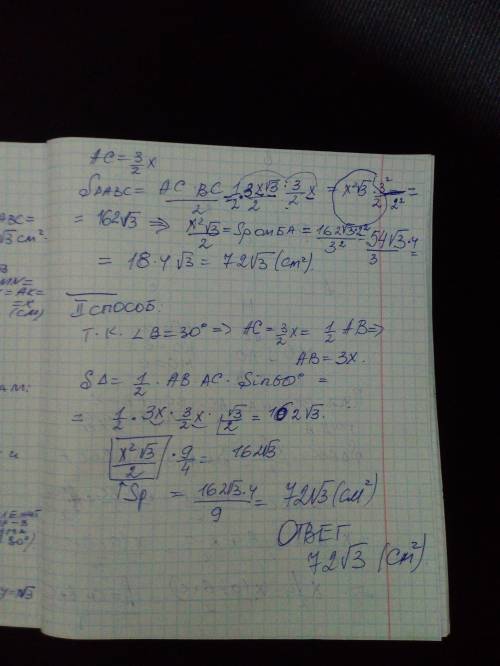 AC = 3/2 x
SΔABC = AC · BC / 2 = 1/2 · 3x√3 / 2 · 3/2 x = x²√3 / 2 · 3² / 2² =
= 162√3 ⇒ x²√3 / 2 = S ромба = 162√3 · 2² / 3² = 54√3 · 4 / 3 =
= 18 · 4 √3 = 72√3 (см²).
II способ.
Т.к. ∠B = 30° => AC = 3/2 x = 1/2 AB =>
AB = 3x.
SΔ = 1/2 · AB · AC · Sin60° =
= 1/2 · 3x · 3/2 x · √3/2 = 162√3.
x²√3 / 2 · 9/4 = 162√3
Sp = 162√3 · 4 / 9 = 72√3 (см²)
ОТВЕТ
72√3 (см²)
ABC =
√3 см².
MN =
= AK =
= x
(см)
30°)